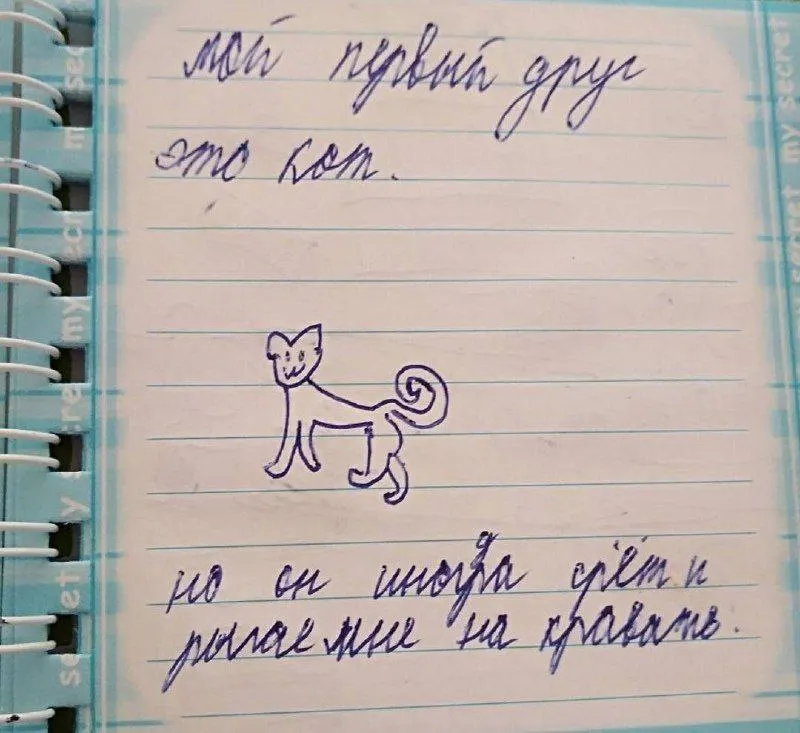 мой первый друг
это кот.
но он иногда срёт и
рыгае мне на кравать.
my secret
my secret